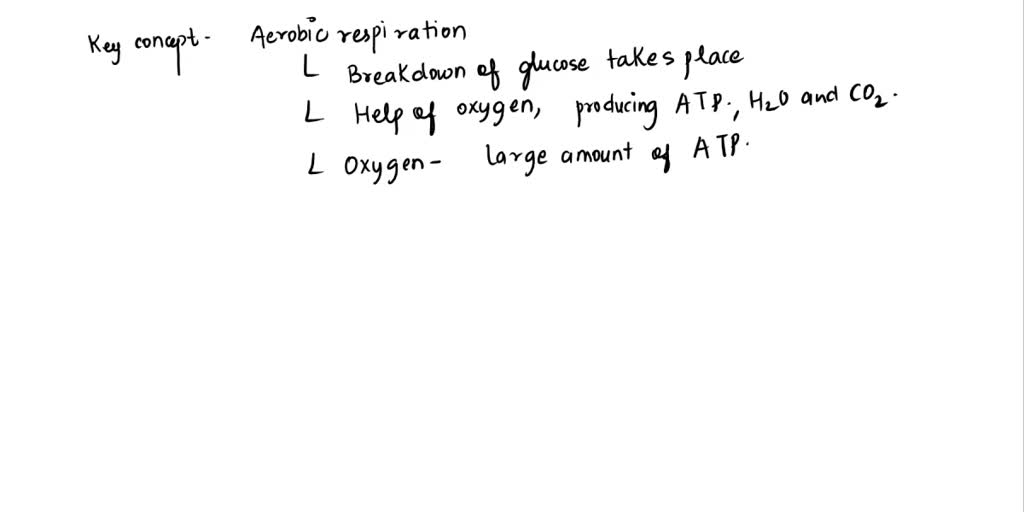 Key concept - Aerobic respiration
L Breakdown of glucose takes place
L Help of oxygen, producing ATP., H₂O and CO₂.
L Oxygen - large amount of ATP.